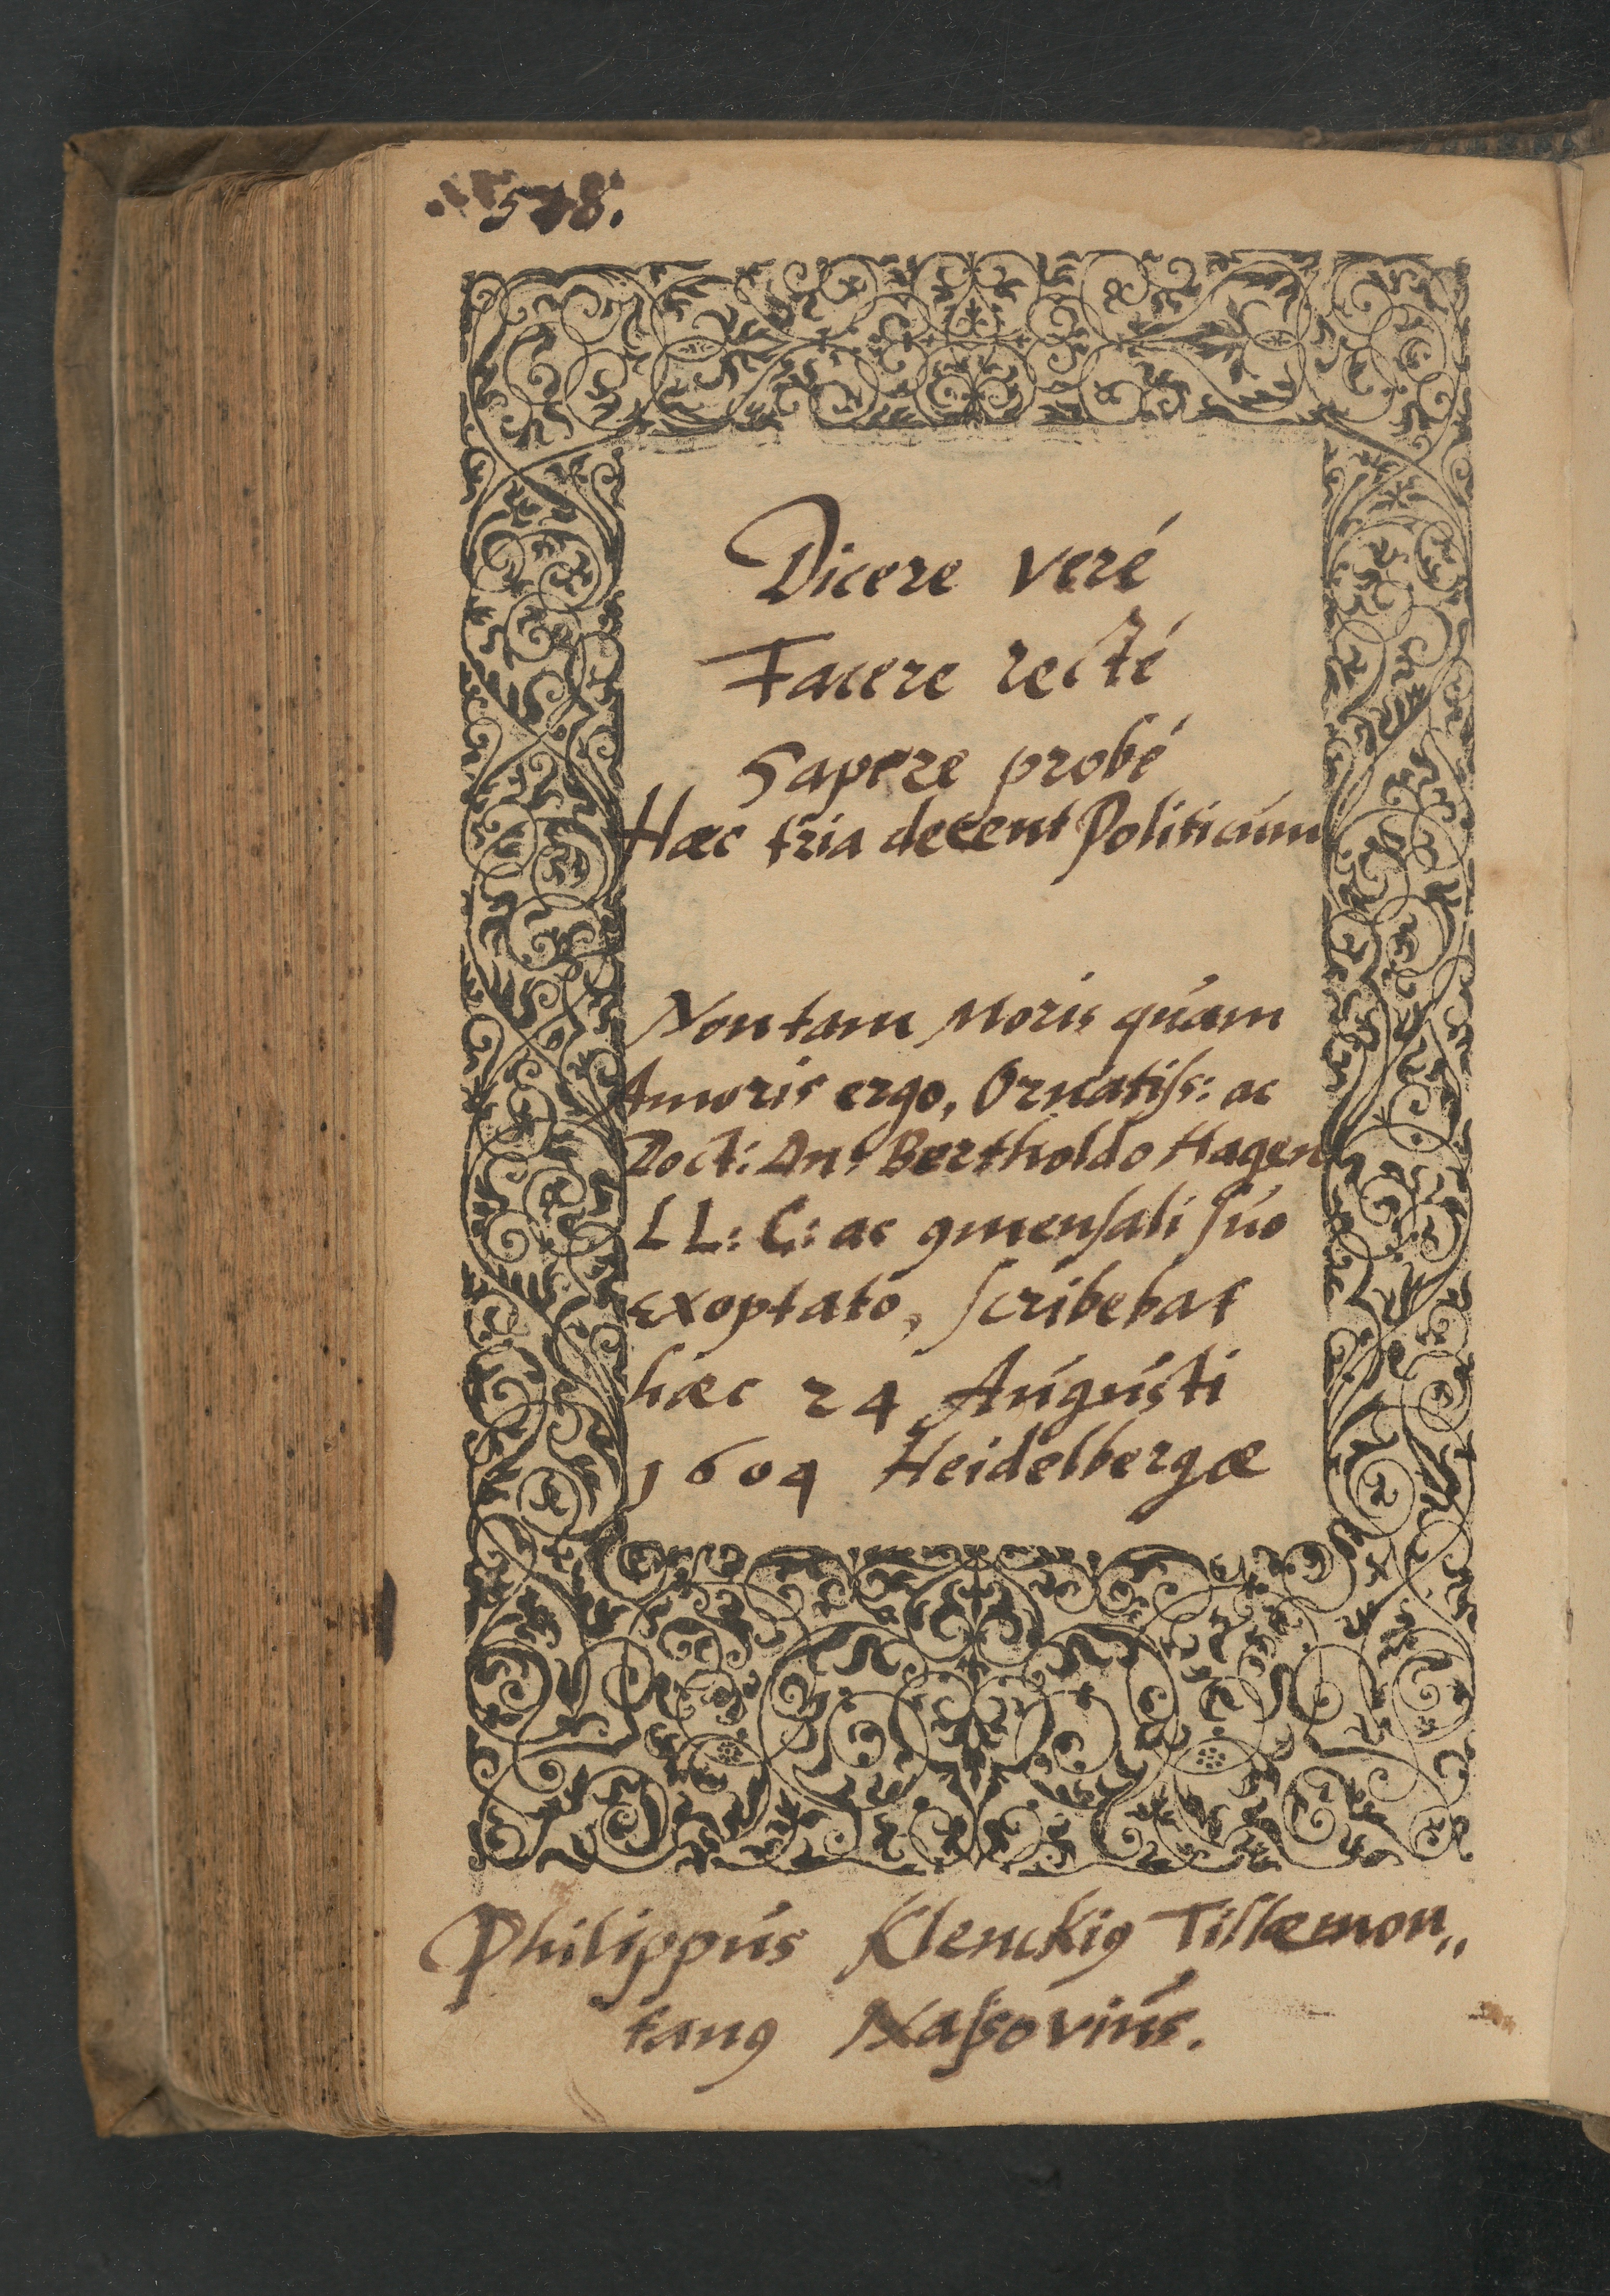 578.
Dicere veré
Facere recté
Sapere probé
Haec tria decent Politicum
Non tam Moris quam
Amoris ergo, Ornatiſs: ac
Doct: Dn: Bertholdo Hagen
LL: C: ac ꝯmenſali ſuo
exoptato, ſcribebat
haec 24 Augusti
1604 Heidelbergæ
Philippus Klenckiꝰ Tislæmon„
tanꝰ Naſsovius.